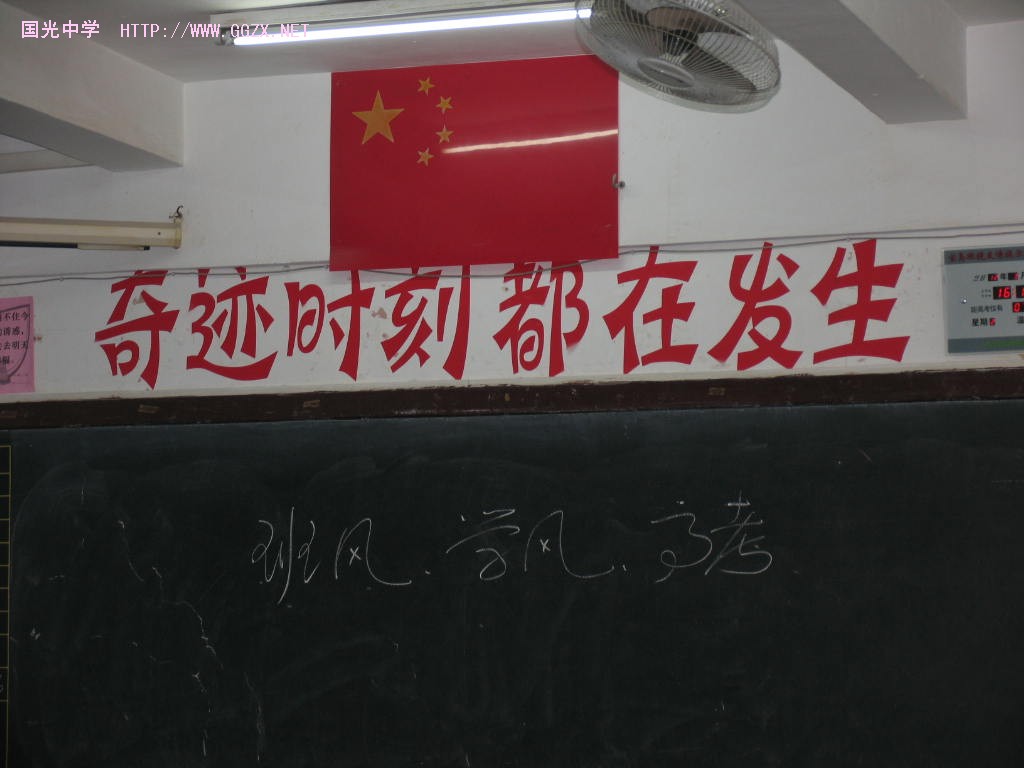 国光中学 HTTP://WWW.GGZX.NET
奇迹时刻都在发生
班风、学风、高考
年
16
距高考仅有
星期
温